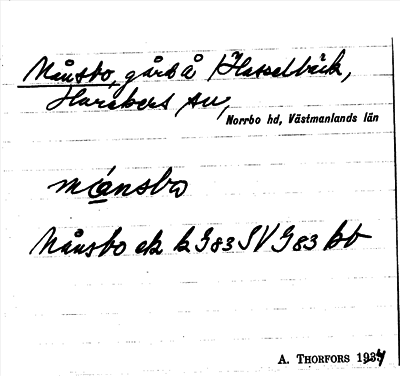 Månsbo, gård å Hasselbäck,
Harakers sn,
Norrbo hd, Västmanlands län
månsbo
Månsbo ek kJ983SVJ983 bb
A. THORFORS 1934